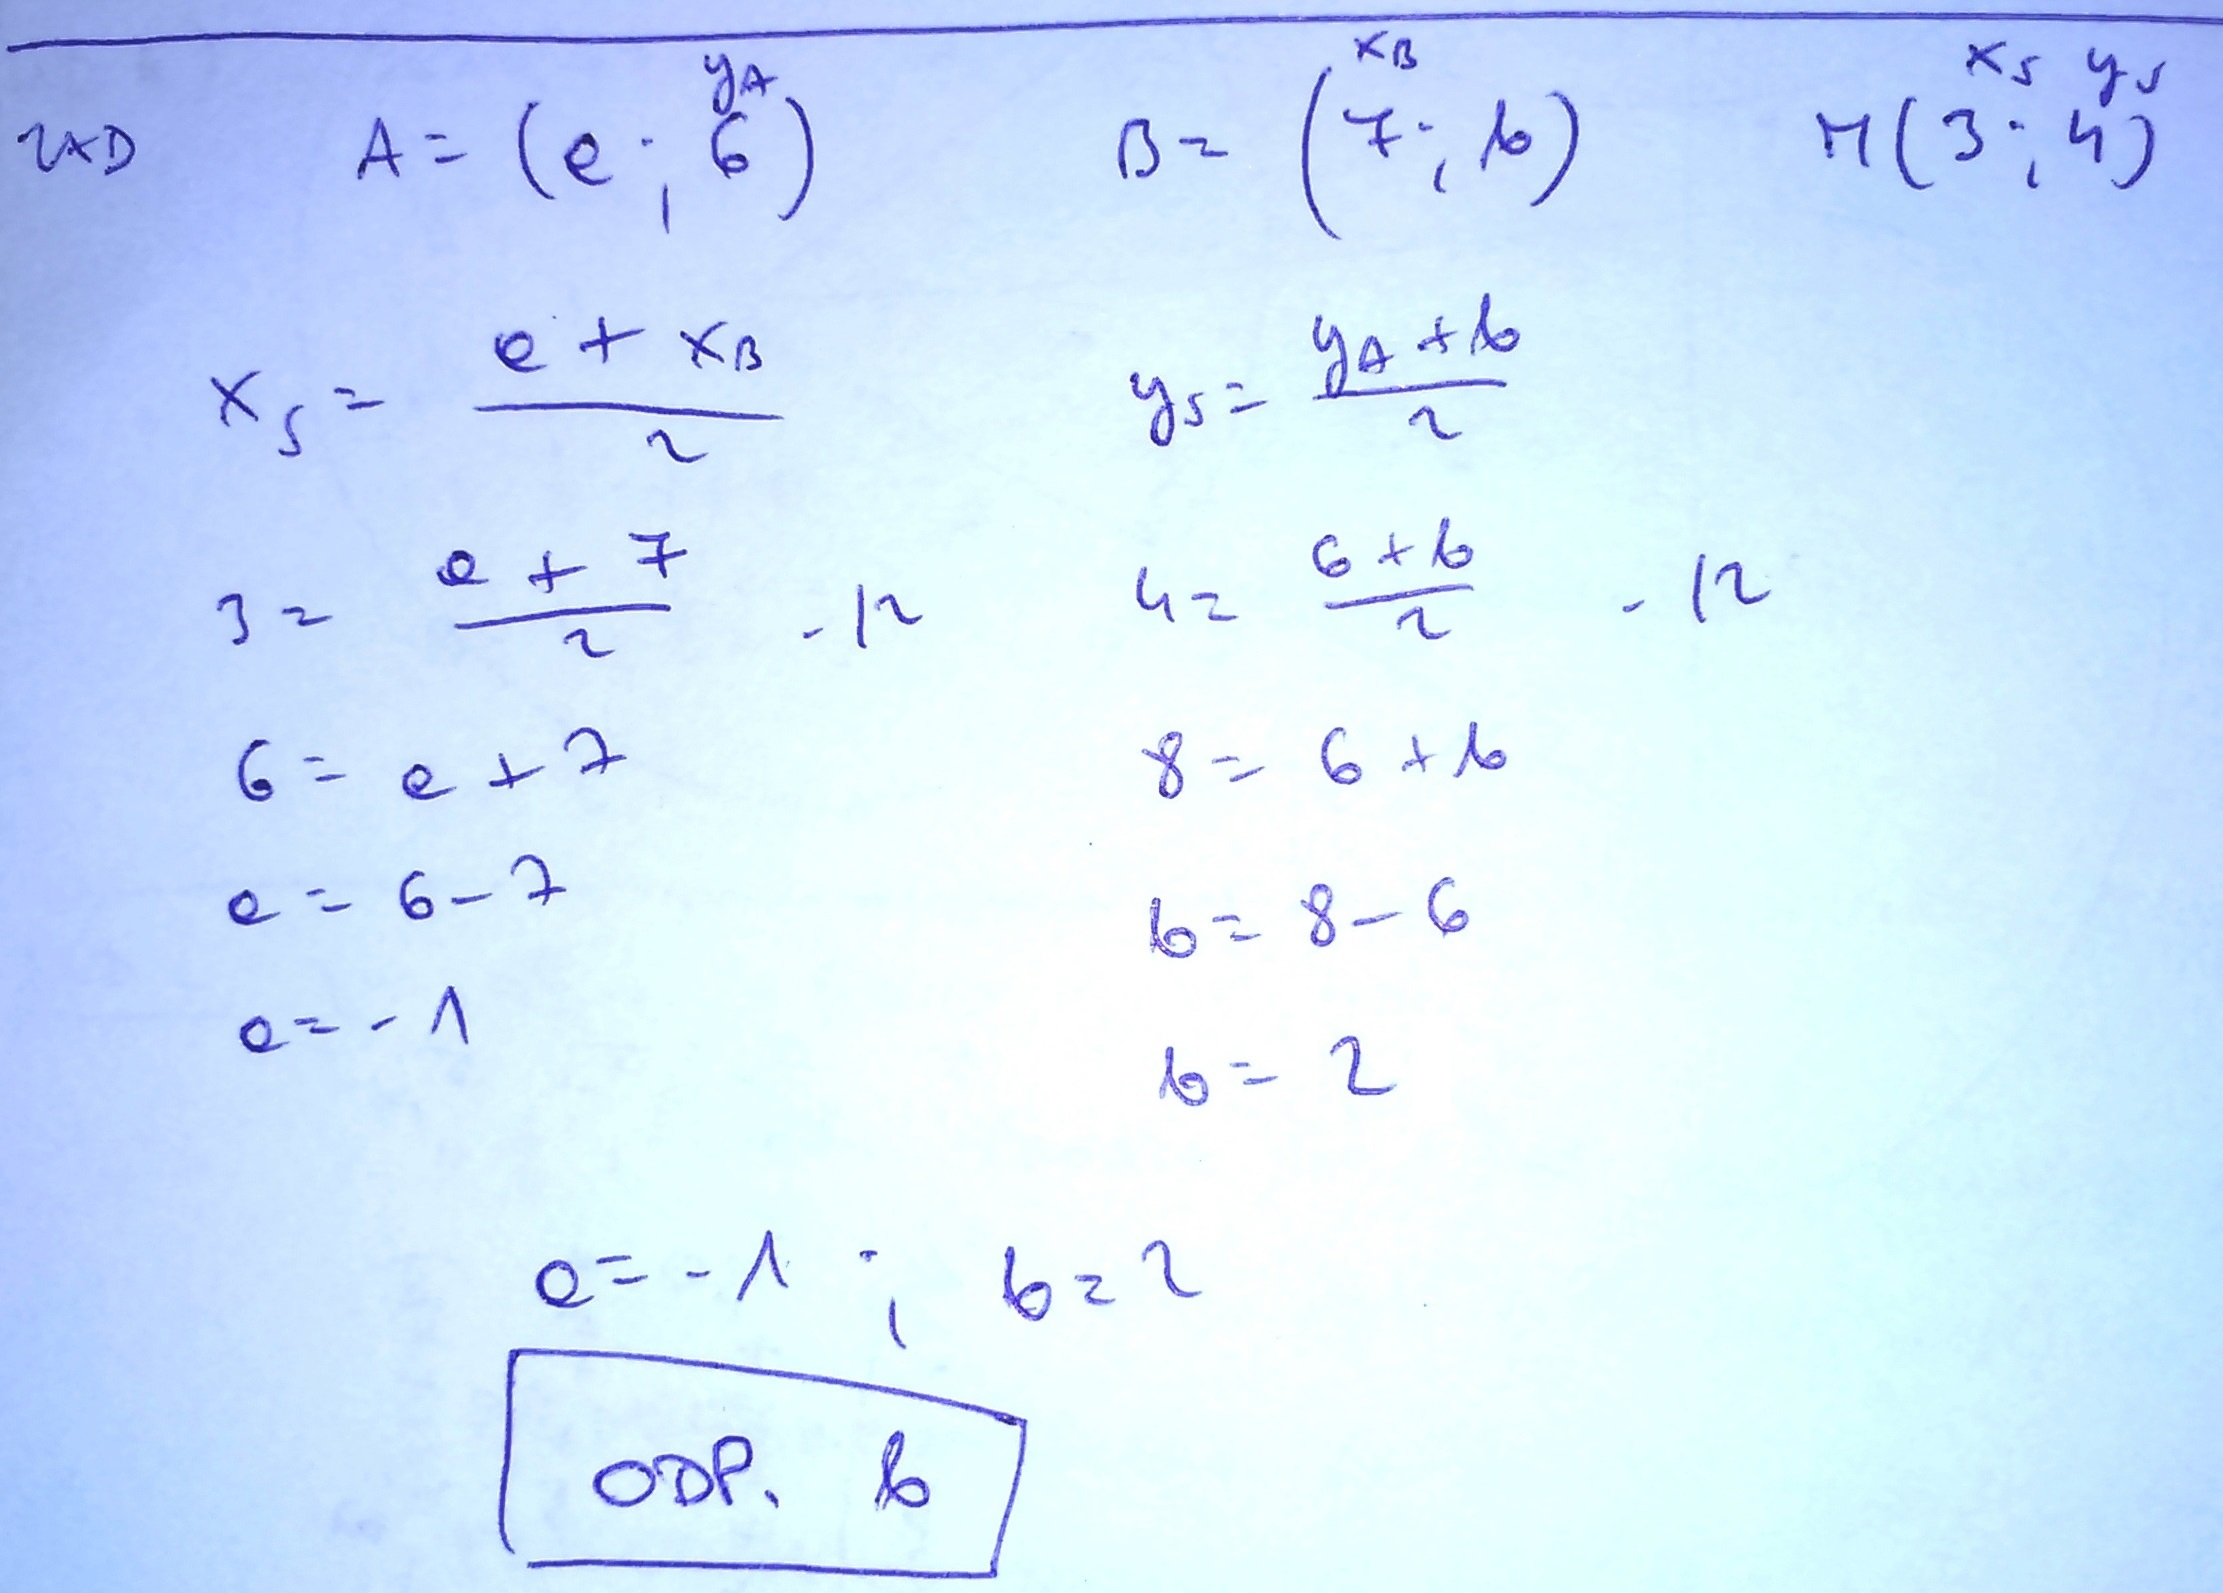 ZAD A = (a; 6) B = (7; b) M(3; 4)
yA xB xS yS
xS = (a + xB)/2 yS = (yA + b)/2
3 = (a + 7)/2 ·/2 4 = (6 + b)/2 ·/2
6 = a + 7 8 = 6 + b
a = 6 - 7 b = 8 - 6
a = -1 b = 2
a = -1 ; b = 2
ODP. b